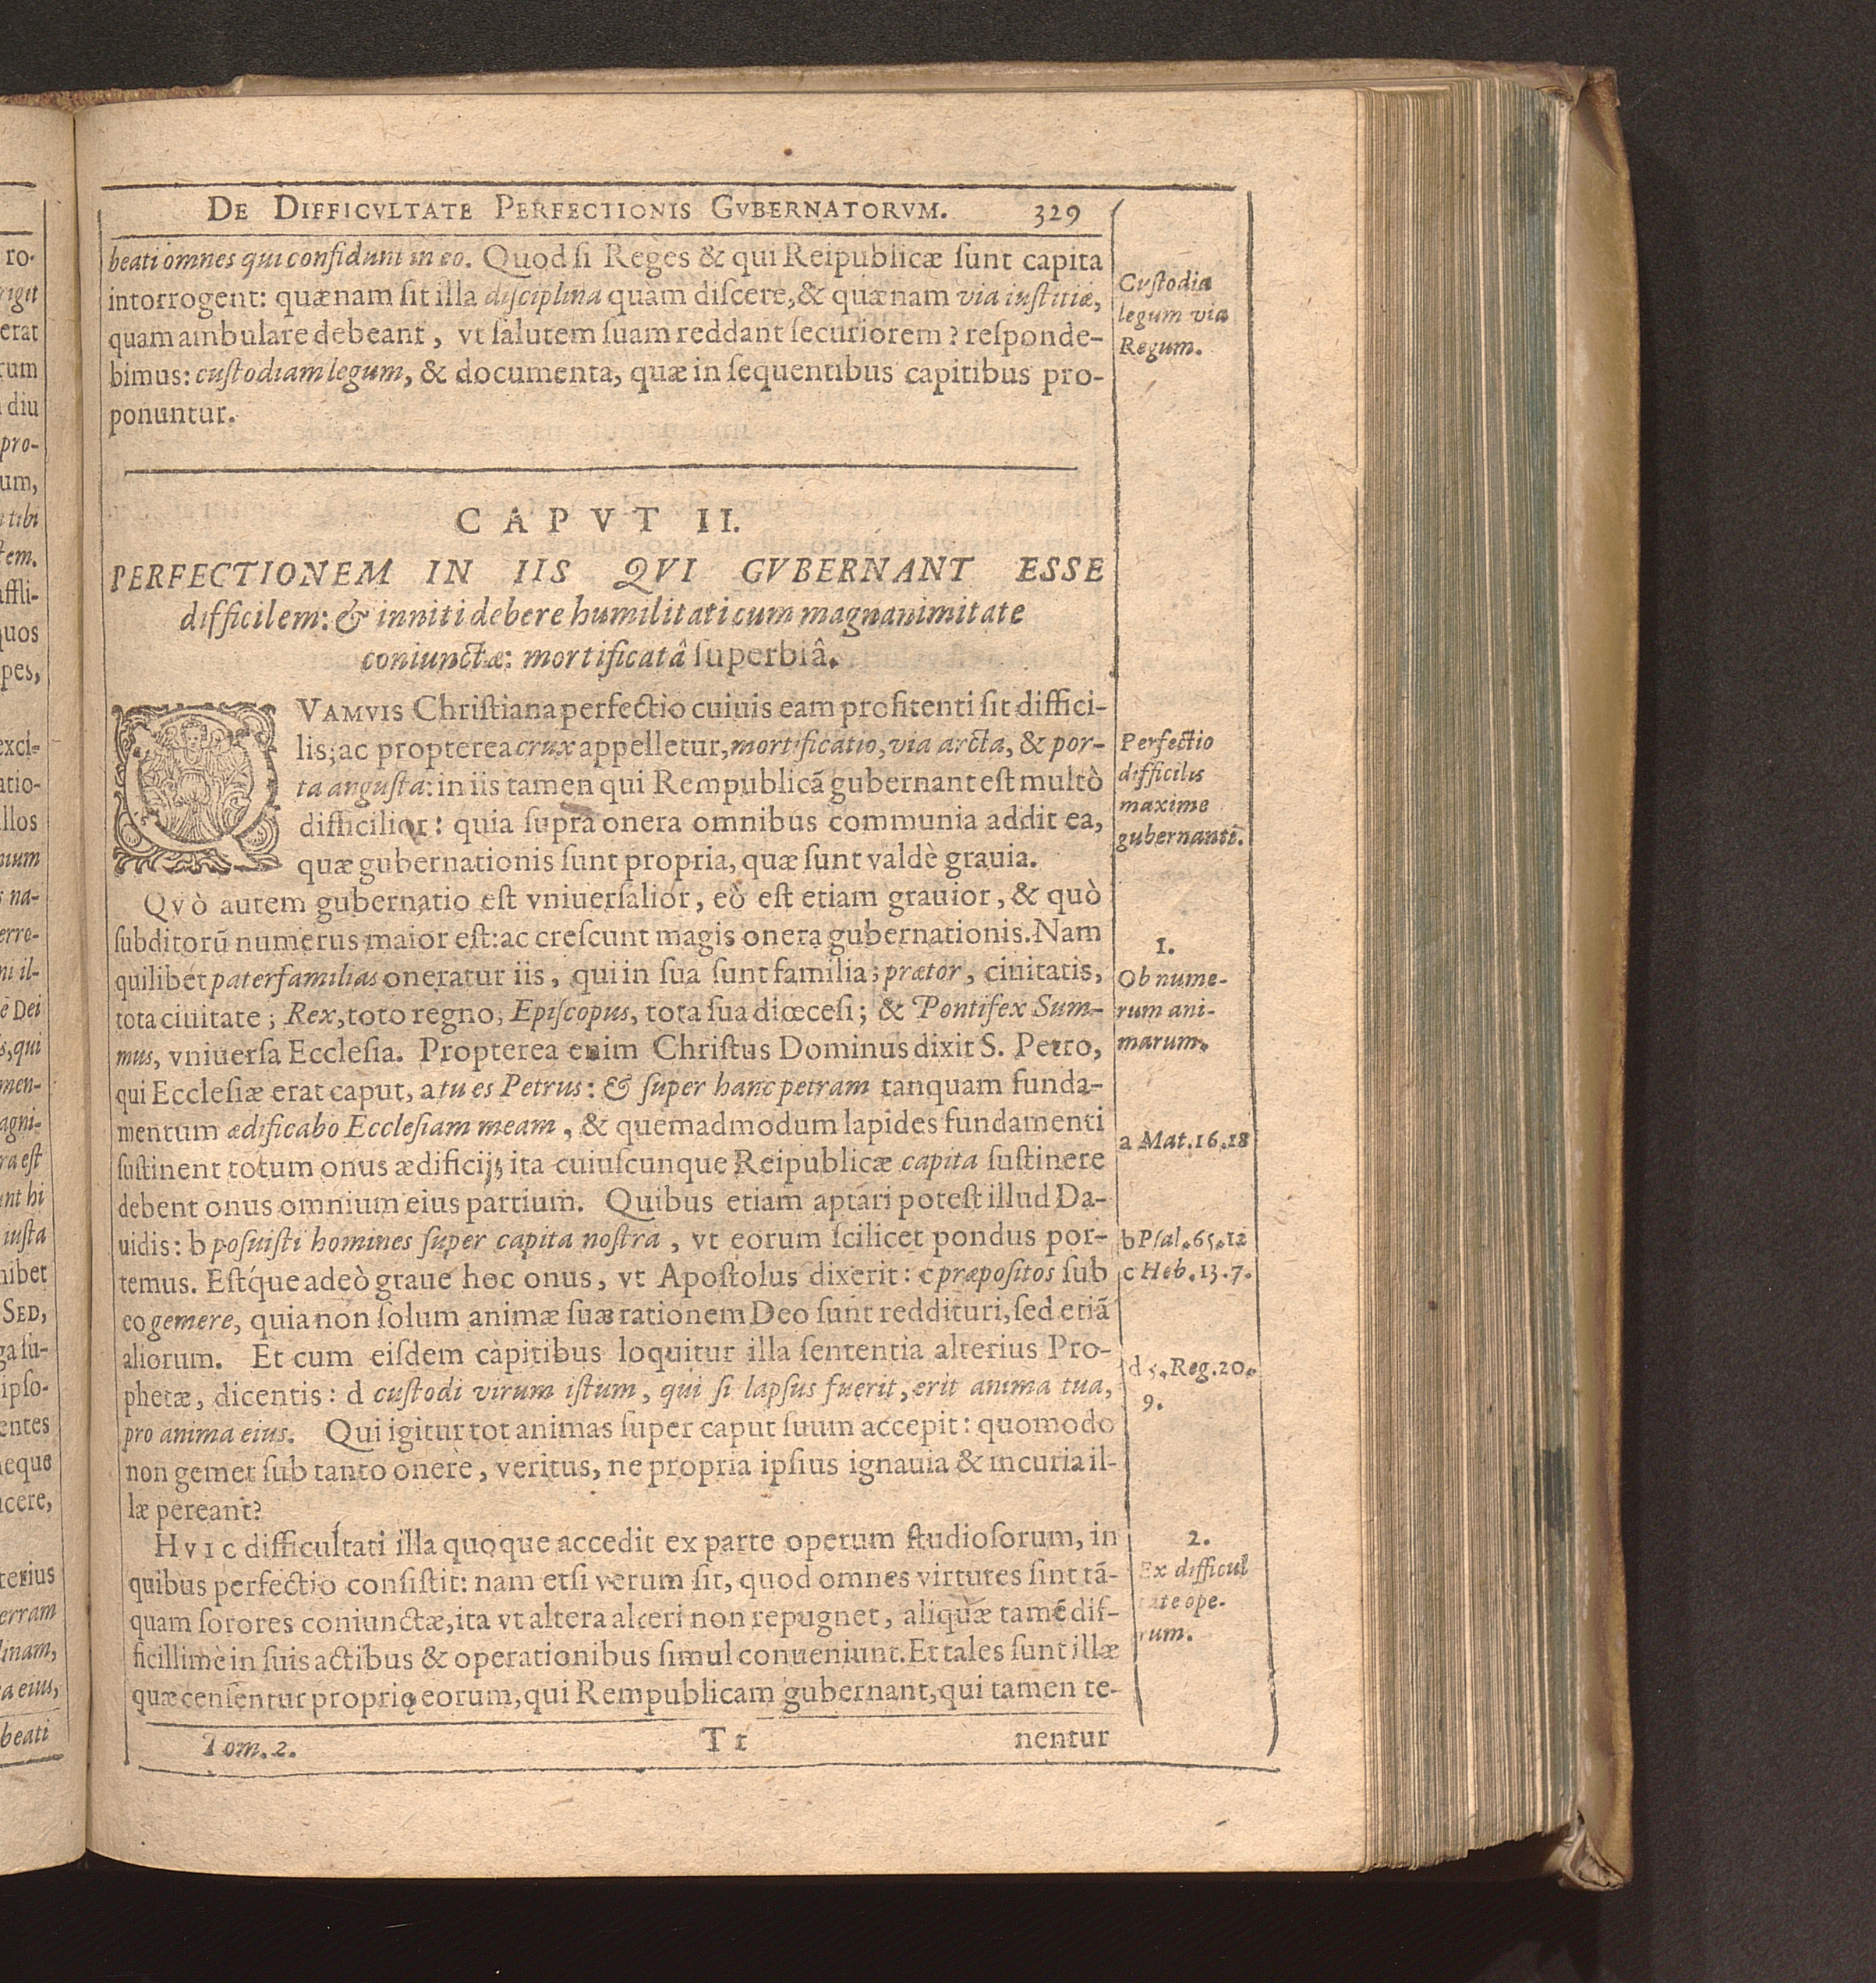 DE DIFFICVLTATE PERFECTIONIS GVBERNATORVM. 329
beati omnes qui confidunt in eo. Quod ſi Reges & qui Reipublicæ ſunt capita
intorrogent: quænam ſit illa diſciplina quàm diſcere, & quænam via iuſtitiæ,
quam ambulare debeant, vt ſalutem ſuam reddant ſecuriorem? reſponde-
bimus: cuſtodiam legum, & documenta, quæ in ſequentibus capitibus pro-
ponuntur.
Cvſtodia
legum via
Regum.
CAPVT II.
PERFECTIONEM IN IIS QVI GVBERNANT ESSE
difficilem: & inniti debere humilitati cum magnanimitate
coniunctæ: mortificatâ ſuperbiâ.
QVAMVIS Chriſtiana perfectio cuiuis eam profitenti ſit diffici-
lis; ac propterea crux appelletur, mortificatio, via arcta, & por-
ta anguſta: in iis tamen qui Rempublicã gubernant eſt multò
difficilior: quia ſupra onera omnibus communia addit ea,
quæ gubernationis ſunt propria, quæ ſunt valdè grauia.
Perfectio
difficilis
maxime
gubernantẽ.
QVÒ autem gubernatio eſt vniuerſalior, eò eſt etiam grauior, & quò
ſubditorũ numerus maior eſt: ac creſcunt magis onera gubernationis. Nam
quilibet paterfamilias oneratur iis, qui in ſua ſunt familia; prætor, ciuitatis,
tota ciuitate; Rex, toto regno; Epiſcopus, tota ſua diœceſi; & Pontifex Sum-
mus, vniuerſa Eccleſia. Propterea enim Chriſtus Dominus dixit S. Petro,
qui Eccleſiæ erat caput, a tu es Petrus: & ſuper hanc petram tanquam funda-
mentum ædificabo Eccleſiam meam, & quemadmodum lapides fundamenti
ſuſtinent totum onus ædificij; ita cuiuſcunque Reipublicæ capita ſuſtinere
debent onus omnium eius partium. Quibus etiam aptari poteſt illud Da-
uidis: b poſuiſti homines ſuper capita noſtra, vt eorum ſcilicet pondus por-
temus. Eſt́que adeò graue hoc onus, vt Apoſtolus dixerit: c præpoſitos ſub
eo gemere, quia non ſolum animæ ſuæ rationem Deo ſunt reddituri, ſed etiã
aliorum. Et cum eiſdem capitibus loquitur illa ſententia alterius Pro-
phetæ, dicentis: d cuſtodi virum iſtum, qui ſi lapſus fuerit, erit anima tua,
pro anima eius. Qui igitur tot animas ſuper caput ſuum accepit: quomodo
non gemet ſub tanto onere, veritus, ne propria ipſius ignauia & incuria il-
læ pereant?
1.
Ob nume-
rum ani-
marum.
a Mat. 16. 18
b Pſal. 65. 12
c Heb. 13. 7.
d 5. Reg. 20.
9.
HVIC difficultati illa quoque accedit ex parte operum ſtudioſorum, in
quibus perfectio conſiſtit: nam etſi verum ſit, quod omnes virtutes ſint tã-
quam ſorores coniunctæ, ita vt altera alteri non repugnet, aliquæ tamẽ dif-
ficillimè in ſuis actibus & operationibus ſimul conueniunt. Et tales ſunt illæ
quæ cenſentur proprię eorum, qui Rempublicam gubernant, qui tamen te-
2.
Ex difficul
tate ope-
rum.
Tom. 2. Tt nentur